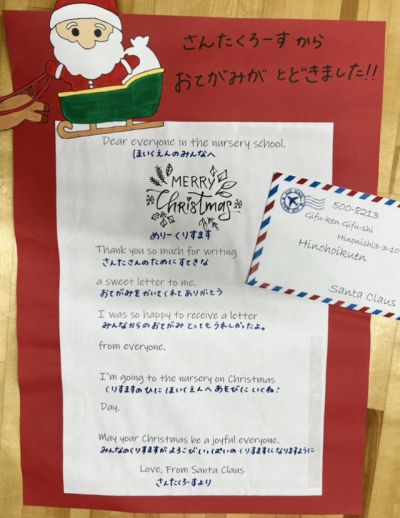 さんたくろーすから
おてがみが とどきました!!
Dear everyone in the nursery school.
ほいくえんのみんなへ
MERRY
Christmas
めりーくりすます
Thank you so much for writing
さんたさんのためにすてきな
a sweet letter to me.
おてがみをかいてくれてありがとう
I was so happy to receive a letter
みんなからのおてがみ とってもうれしかったよ。
from everyone.
I'm going to the nursery on Christmas
くりすますのひに ほいくえんへ あそびに いくね!
Day.
May your Christmas be a joyful everyone.
みんなのくりすますが よろこびいっぱいの くりすますになりますように
Love, From Santa Claus
さんたくろーすより
500-8213
Gifu-ken Gifu-shi
Hinonishi3-3-10
Hinohoikuen
Santa Claus